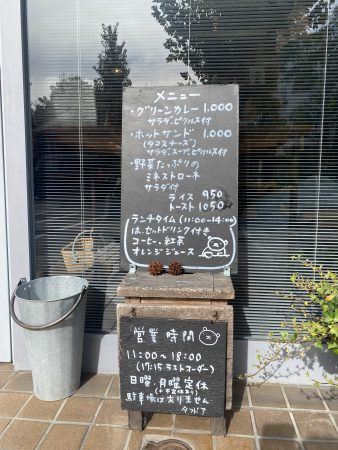 メニュー
・グリーンカレー 1.000
サラダ、ピクルス付
・ホットサンド 1.000
(タコスチーズ)
サラダ、スープ、ピクルス付
・野菜たっぷりの
ミネストローネ
サラダ付
ライス 950
トースト 1050
ランチタイム (11:00-14:00)
は、セットドリンク付き
コーヒー、紅茶
オレンジジュース
営業時間
11:00〜18:00
(17:15 ラストオーダー)
日曜、月曜定休
駐車場はありません